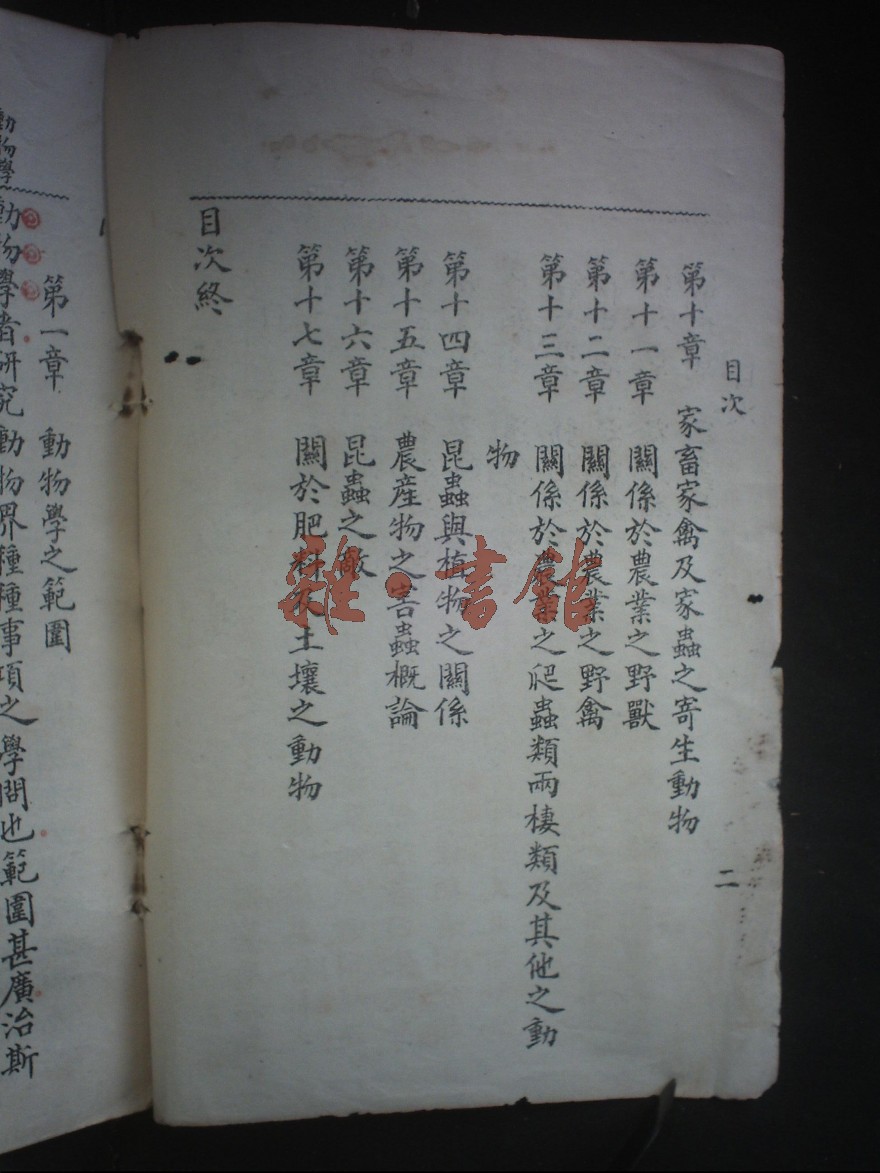 目次
二
第十章　家畜家禽及家蟲之寄生動物
第十一章　關係於農業之野獸
第十二章　關係於農業之野禽
第十三章　關係於農業之爬蟲類兩棲類及其他之動
物
第十四章　昆蟲與植物之關係
第十五章　農産物之害蟲概論
第十六章　昆蟲之敵
第十七章　關於肥料及土壤之動物
目次終
雜·書館
動物學
第一章　動物學之範圍
動物學者研究動物界種種事項之學問也範圍甚廣治斯